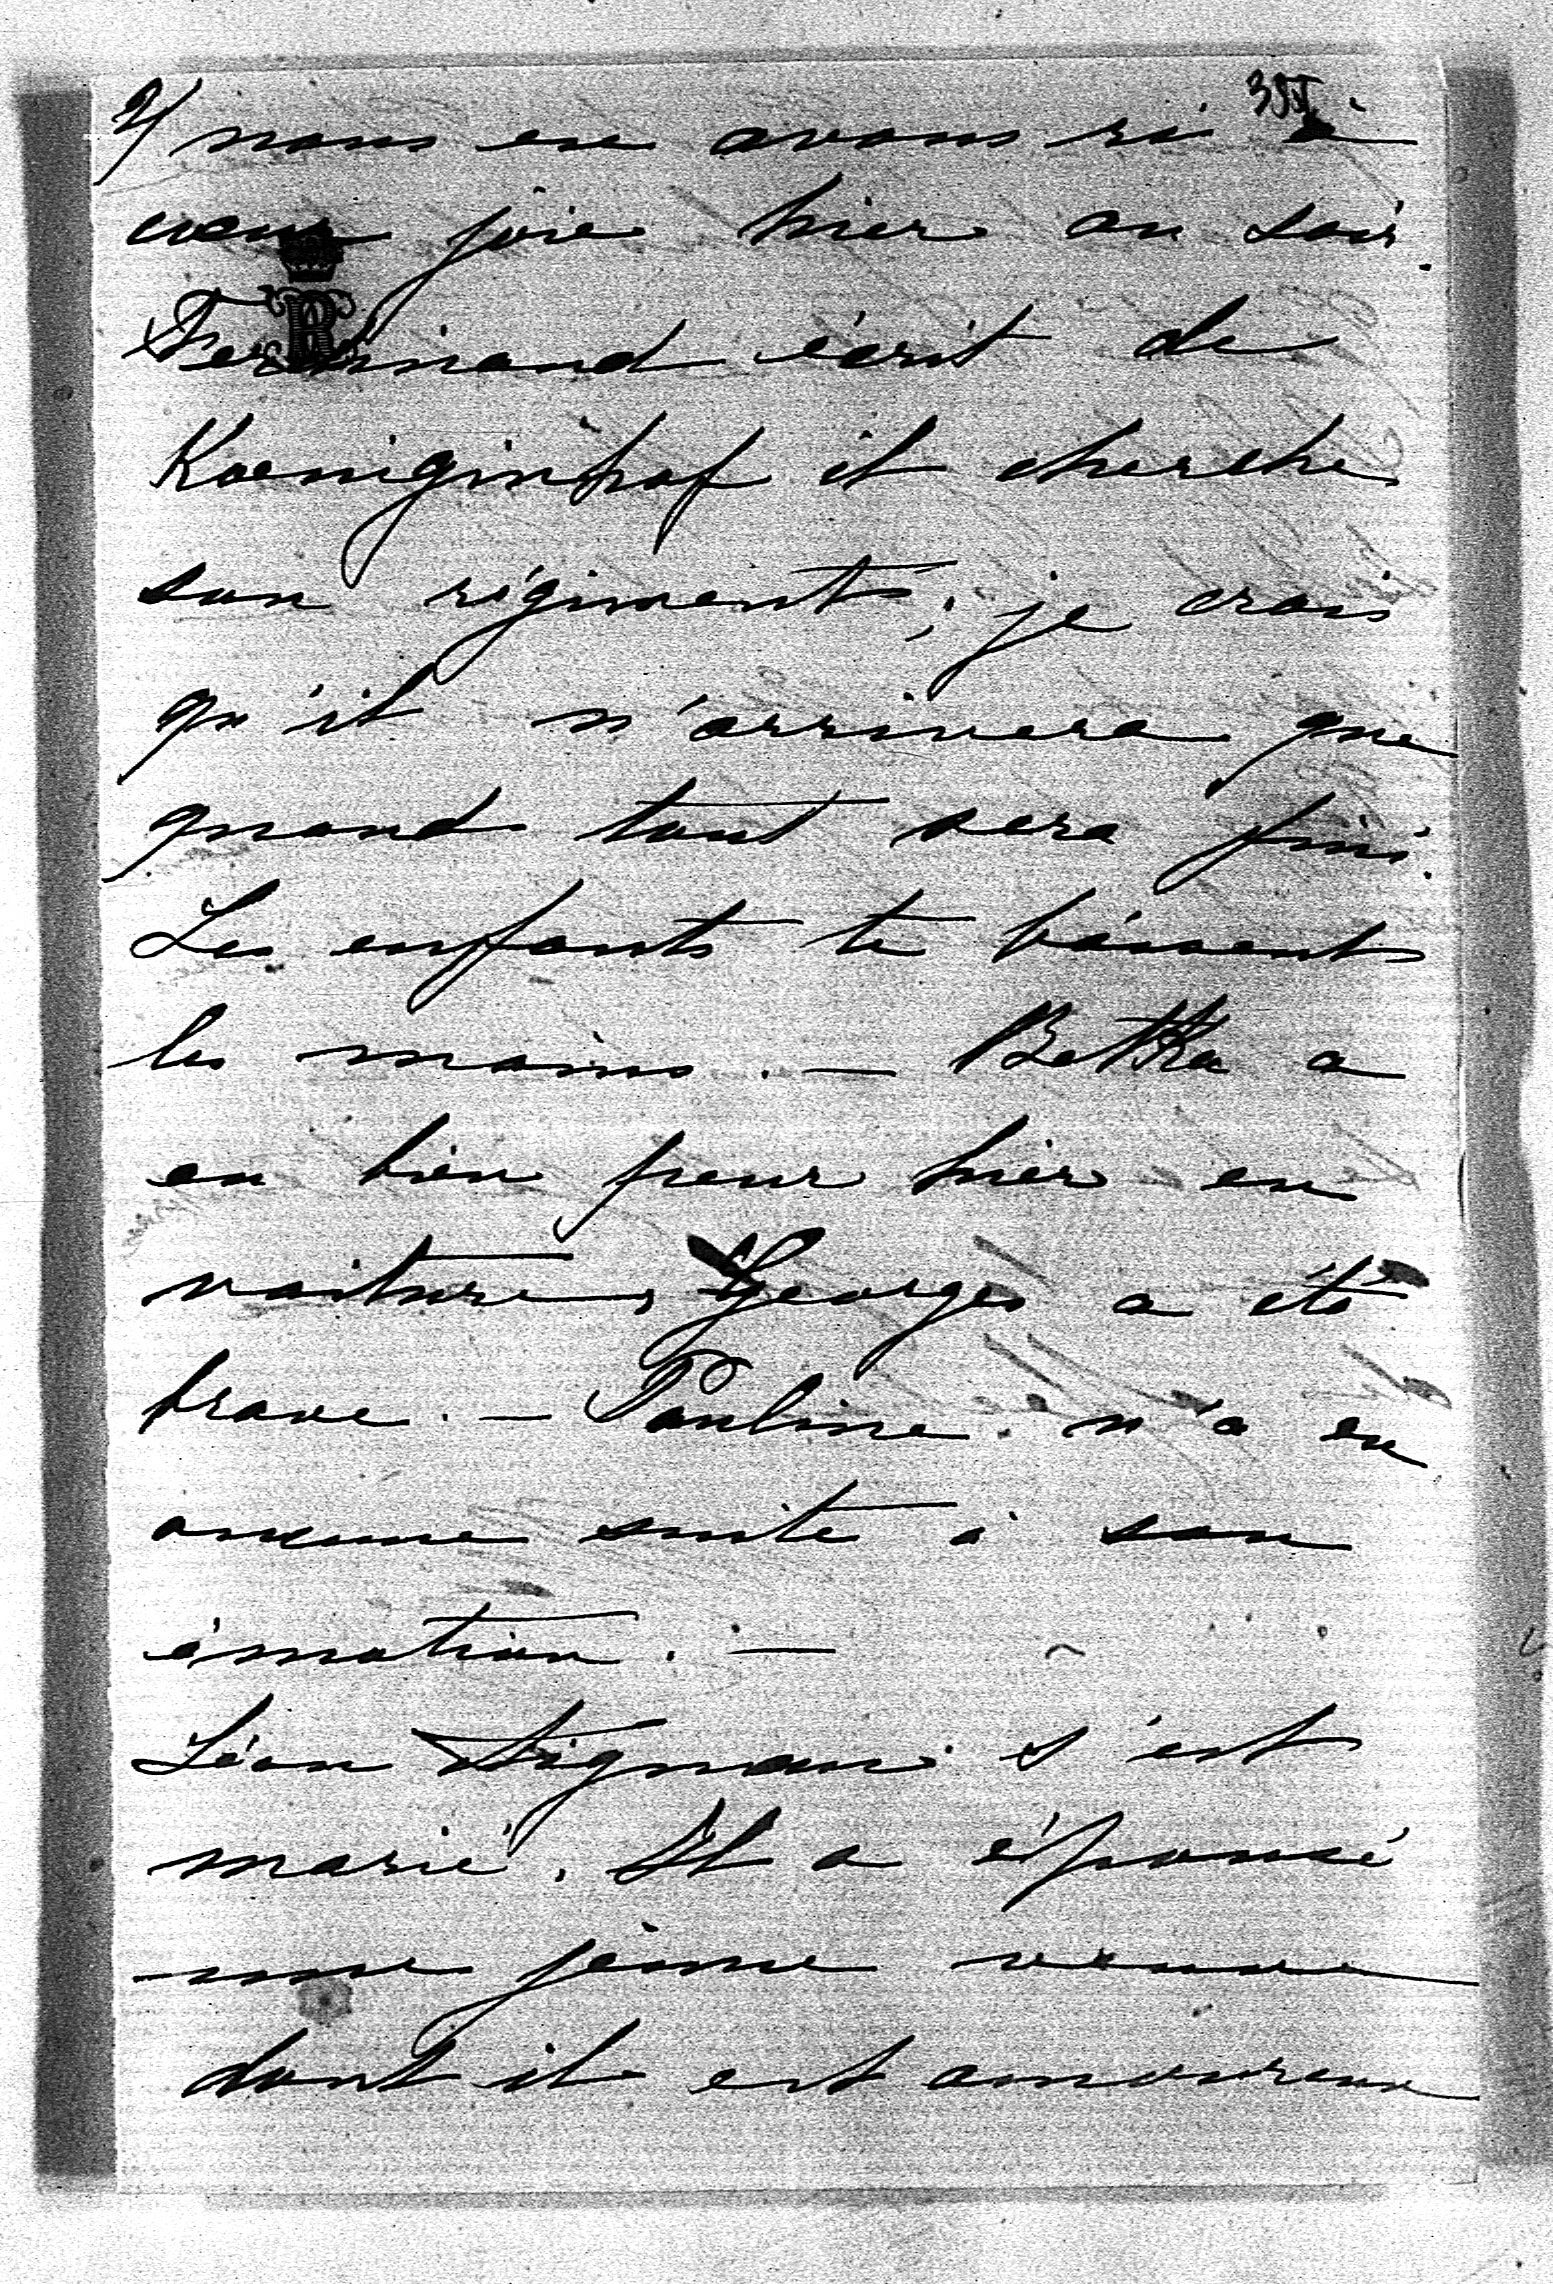 2/ nous en avons ri à
coeur joie hier au soir.
Ferdinand écrit de
Koeniginhof il cherche
son régiment; je crois
qu'il n'arrivera que
quand tout sera fini.
Les enfants te baisent
les mains. — Bettka a
eu bien peur hier en
voiture, Georges a été
brave. — Pauline n'a eu
aucune suite à son
émotion. —
Léon s'est
marié. Il a épousé
une jeune veuve
dont il est amoureux